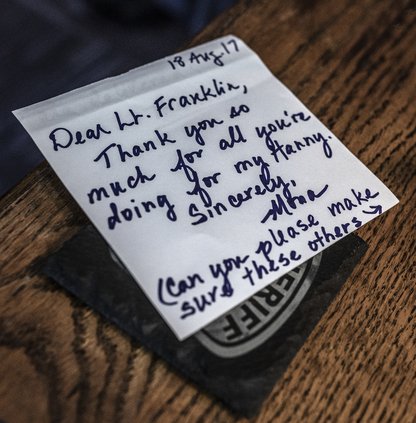 18 Aug 17
Dear Lt. Franklin,
Thank you so
much for all you're
doing for my Hanny.
Sincerely,
Mona
(Can you please make
sure these others →
ERIFF